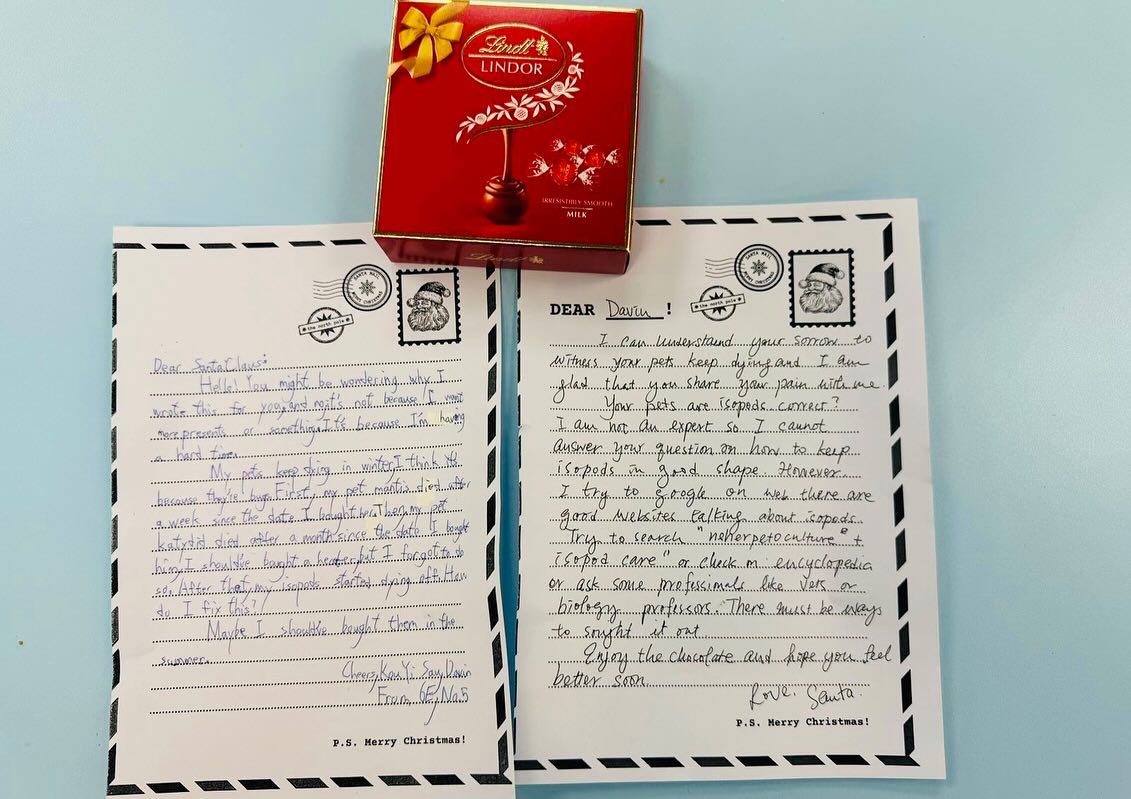 Lindt
LINDOR
IRRESISTIBLY SMOOTH
MILK
Lindt
SANTA MAIL
MERRY CHRISTMAS
the north pole
Dear Santa Claus:
Hello! You might be wondering why I
wrote this for you, and no, it's not because I want
more presents or something. It's because I'm having
a hard time.
My pets keep dying in winter, I think it's
because they're bugs. First, my pet mantis died after
a week since the date I bought her. Then, my pet
katydid died after a month since the date I bought
him, I should've bought a heater, but I forgot to do
so. After that, my isopods started dying off. How
do I fix this?
Maybe I should've bought them in the
summer.
Cheers, Kou Yi Sau, Davin
From 6E, No.5
P.S. Merry Christmas!
SANTA MAIL
MERRY CHRISTMAS
the north pole
DEAR Davin !
I can understand your sorrow to
witness your pets keep dying and I am
glad that you share your pain with me.
Your pets are isopods correct?
I am not an expert so I cannot
answer your question on how to keep
isopods in good shape. However
I try to google on web there are
good websites talking about isopods.
Try to search "neherpetoculture" +
isopod care" or check in encyclopedia
or ask some professinals like vets or
biology professors. There must be ways
to sought it out
Enjoy the chocolate and hope you feel
better soon.
Love, Santa.
P.S. Merry Christmas!